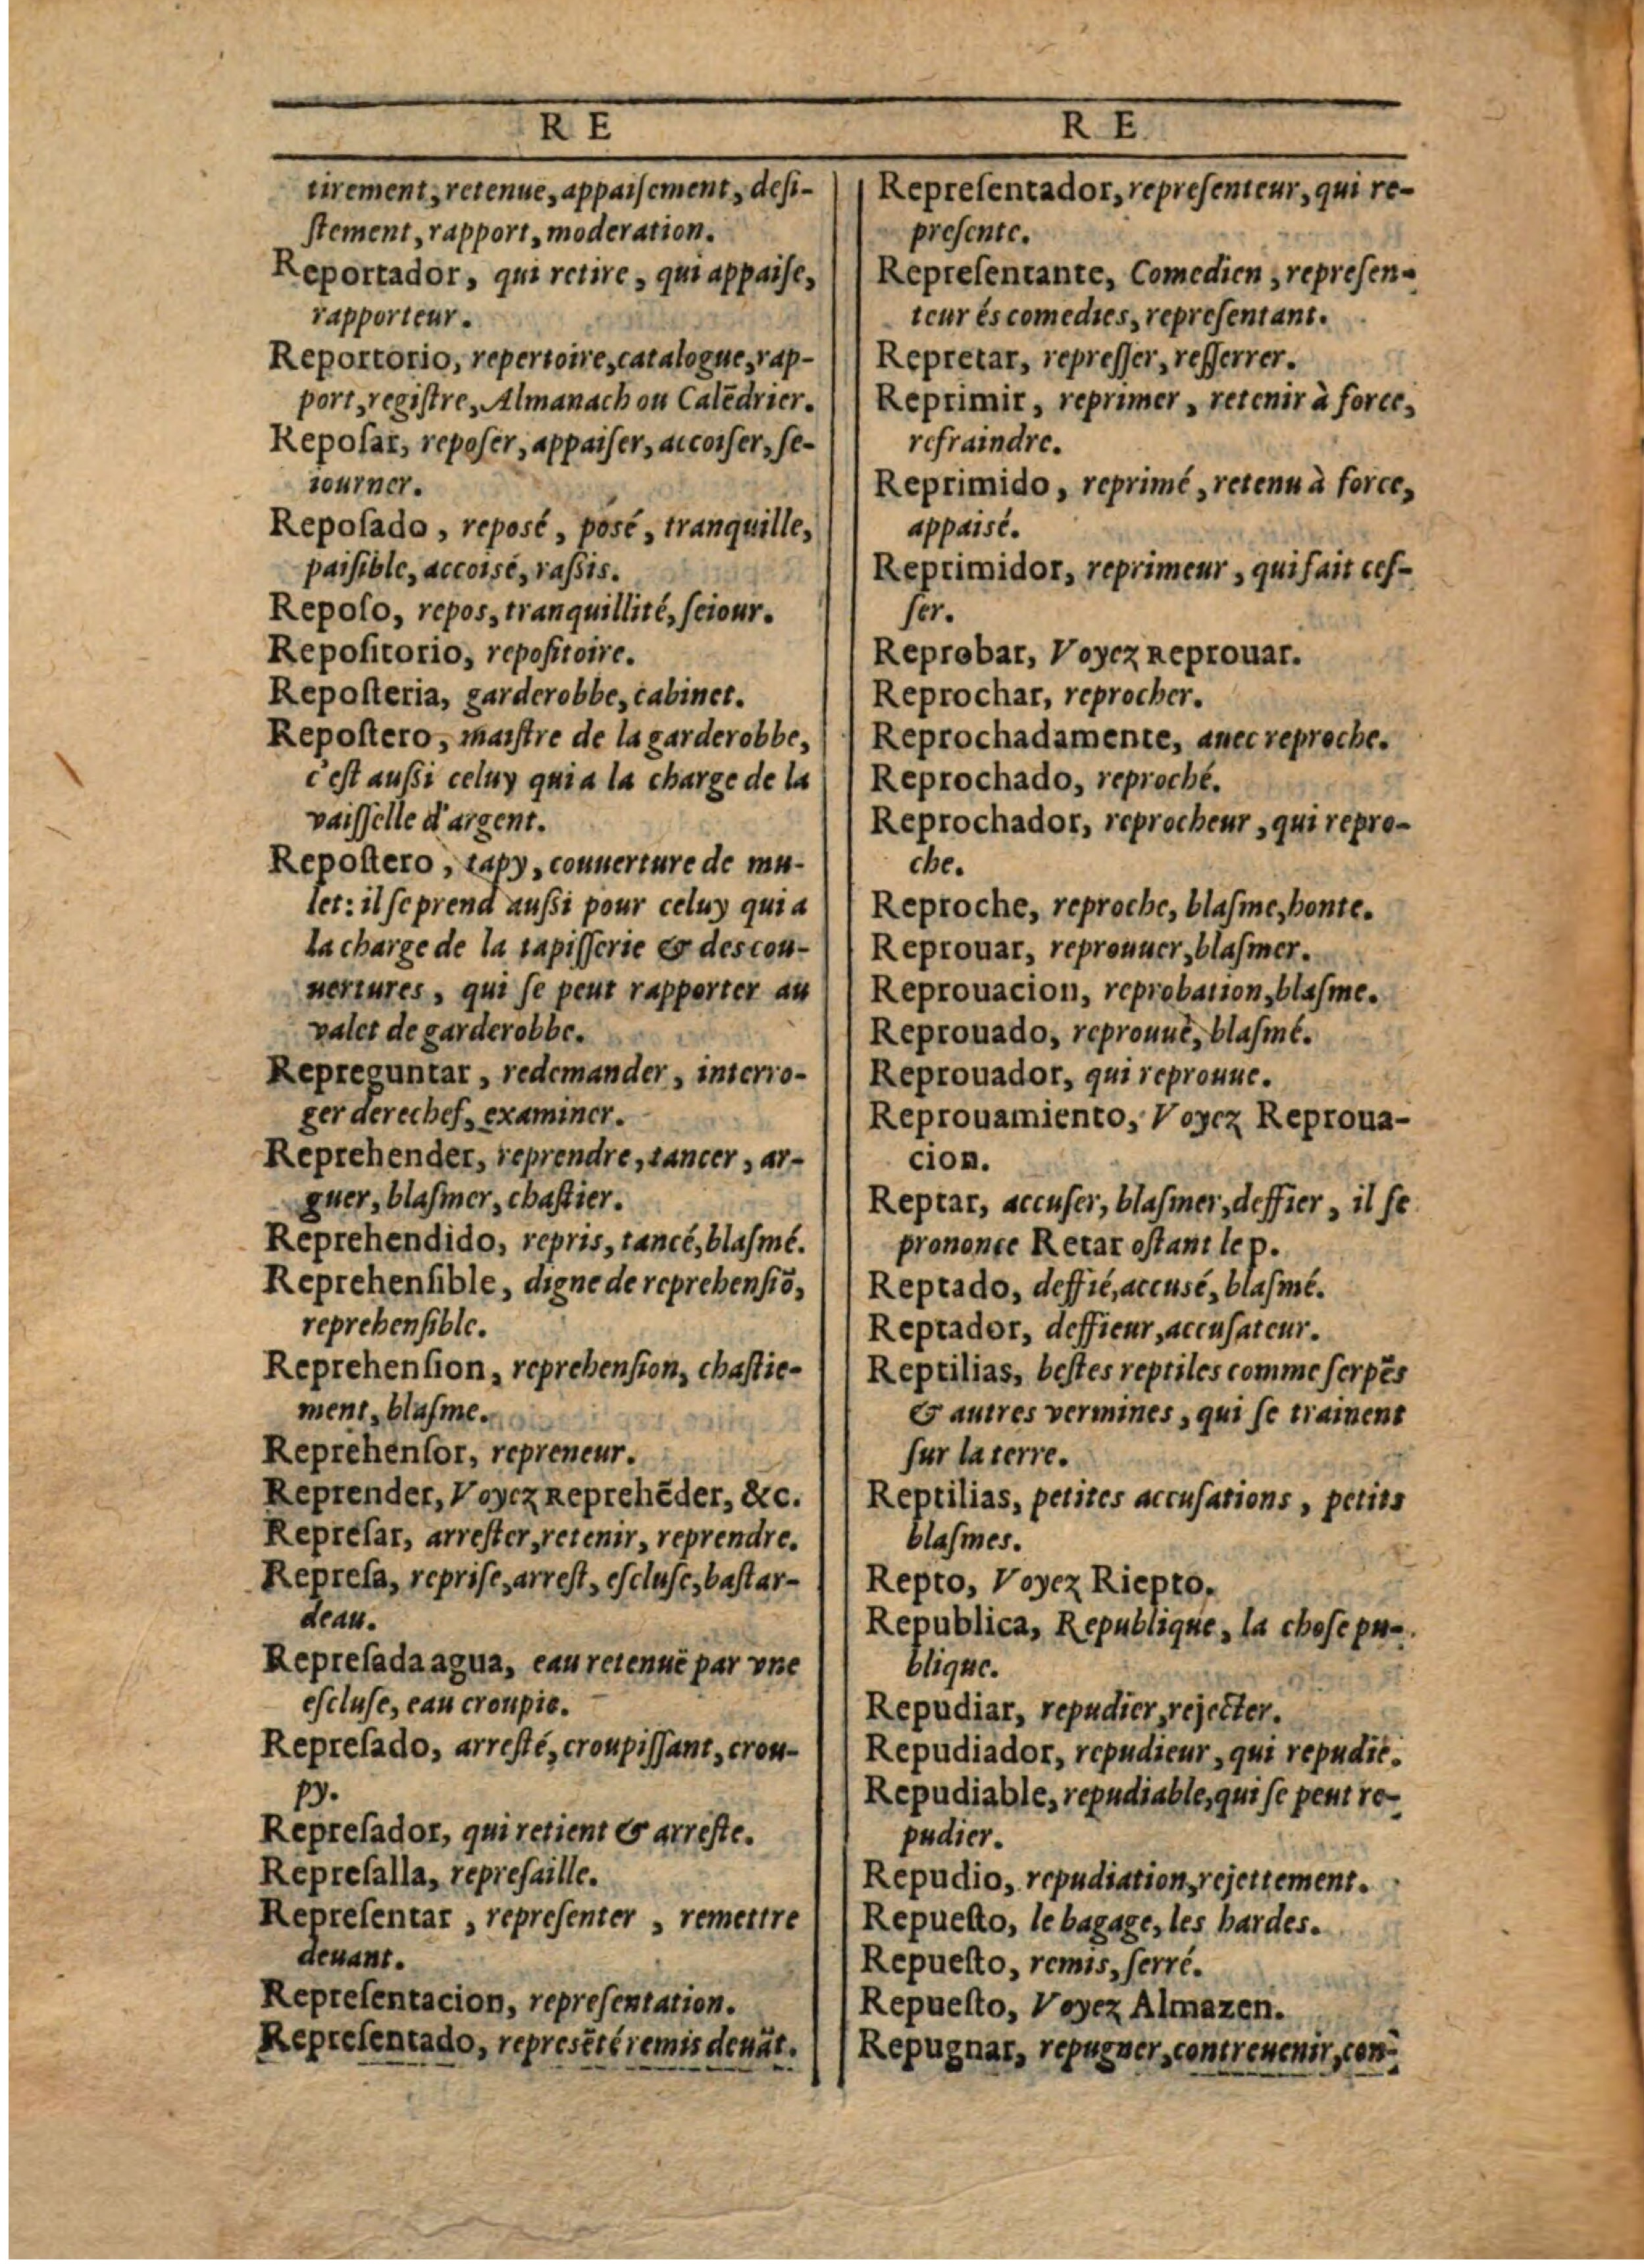 R E
tirement, retenue, appaiſement, deſi-
ſtement, rapport, moderation.
Reportador, qui retire, qui appaiſe,
rapporteur.
Reportorio, repertoire, catalogue, rap-
port, regiſtre, Almanach ou Calēdrier.
Repoſar, repoſer, appaiſer, accoiſer, ſe-
iourner.
Repoſado, reposé, posé, tranquille,
paiſible, accoisé, raſsis.
Repoſo, repos, tranquillité, ſeiour.
Repoſitorio, repoſitoire.
Repoſteria, garderobbe, cabinet.
Repoſtero, maiſtre de la garderobbe,
c'eſt auſsi celuy qui a la charge de la
vaiſſelle d'argent.
Repoſtero, tapy, couuerture de mu-
let: il ſe prend auſsi pour celuy qui a
la charge de la tapiſſerie & des cou-
uertures, qui ſe peut rapporter au
valet de garderobbe.
Repreguntar, redemander, interro-
ger derechef, examiner.
Reprehender, reprendre, tancer, ar-
guer, blaſmer, chaſtier.
Reprehendido, repris, tancé, blaſmé.
Reprehenſible, digne de reprehenſiō,
reprehenſible.
Reprehenſion, reprehenſion, chaſtie-
ment, blaſme.
Reprehenſor, repreneur.
Reprender, Voyez Reprehēder, &c.
Repreſar, arreſter, retenir, reprendre.
Repreſa, repriſe, arreſt, eſcluſe, baſtar-
deau.
Repreſada agua, eau retenuë par vne
eſcluſe, eau croupie.
Repreſado, arreſté, croupiſſant, crou-
py.
Repreſador, qui retient & arreſte.
Repreſalla, repreſaille.
Repreſentar, repreſenter, remettre
deuant.
Repreſentacion, repreſentation.
Repreſentado, represētéremis deuāt.
R E
Repreſentador, repreſenteur, qui re-
preſente.
Repreſentante, Comedien, repreſen-
teur és comedies, repreſentant.
Repretar, repreſſer, reſſerrer.
Reprimir, reprimer, retenir à force,
refraindre.
Reprimido, reprimé, retenu à force,
appaisé.
Reprimidor, reprimeur, qui fait ceſ-
ſer.
Reprobar, Voyez Reprouar.
Reprochar, reprocher.
Reprochadamente, auec reproche.
Reprochado, reproché.
Reprochador, reprocheur, qui repro-
che.
Reproche, reproche, blaſme, honte.
Reprouar, reprouuer, blaſmer.
Reprouacion, reprobation, blaſme.
Reprouado, reprouuè, blaſmé.
Reprouador, qui reprouue.
Reprouamiento, Voyez Reproua-
cion.
Reptar, accuſer, blaſmer, deffier, il ſe
prononce Retar oſtant le p.
Reptado, deffié, accusé, blaſmé.
Reptador, deffieur, accuſateur.
Reptilias, beſtes reptiles comme ſerpēs
& autres vermines, qui ſe trainent
ſur la terre.
Reptilias, petites accuſations, petits
blaſmes.
Repto, Voyez Riepto.
Republica, Republique, la choſe pu-
blique.
Repudiar, repudier, rejecter.
Repudiador, repudieur, qui repudie.
Repudiable, repudiable, qui ſe peut re-
pudier.
Repudio, repudiation, rejettement.
Repueſto, le bagage, les hardes.
Repueſto, remis, ſerré.
Repueſto, Voyez Almazen.
Repugnar, repugner, contreuenir, con-